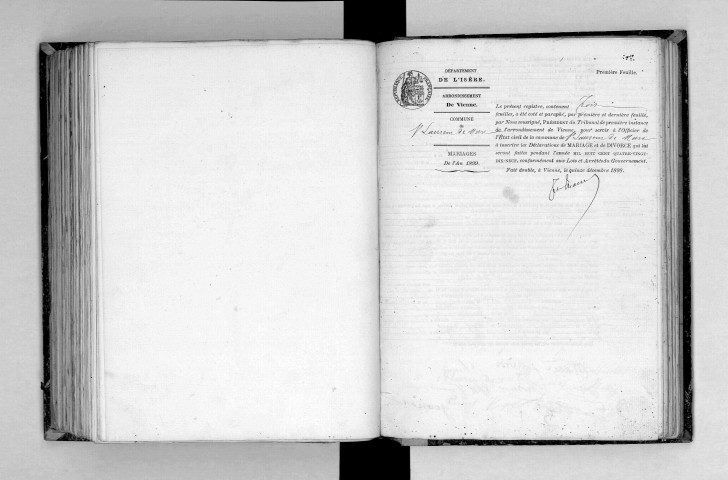 DÉPARTEMENT
DE L'ISÈRE.
ARRONDISSEMENT
De Vienne.
COMMUNE
de
St Laurent de Mure
MARIAGES
De l'An 1899.
Première Feuille.
Le présent registre, contenant trois
feuilles, a été coté et paraphé, par première et dernière feuille,
par Nous soussigné, Président du Tribunal de première instance
de l'arrondissement de Vienne, pour servir à l'Officier de
l'État civil de la commune de St Laurent de Mure
à inscrire les Déclarations de MARIAGE et de DIVORCE qui lui
seront faites pendant l'année MIL HUIT CENT QUATRE-VINGT-
DIX-NEUF, conformément aux Lois et Arrêtés du Gouvernement.
Fait double, à Vienne, le quinze décembre 1898.